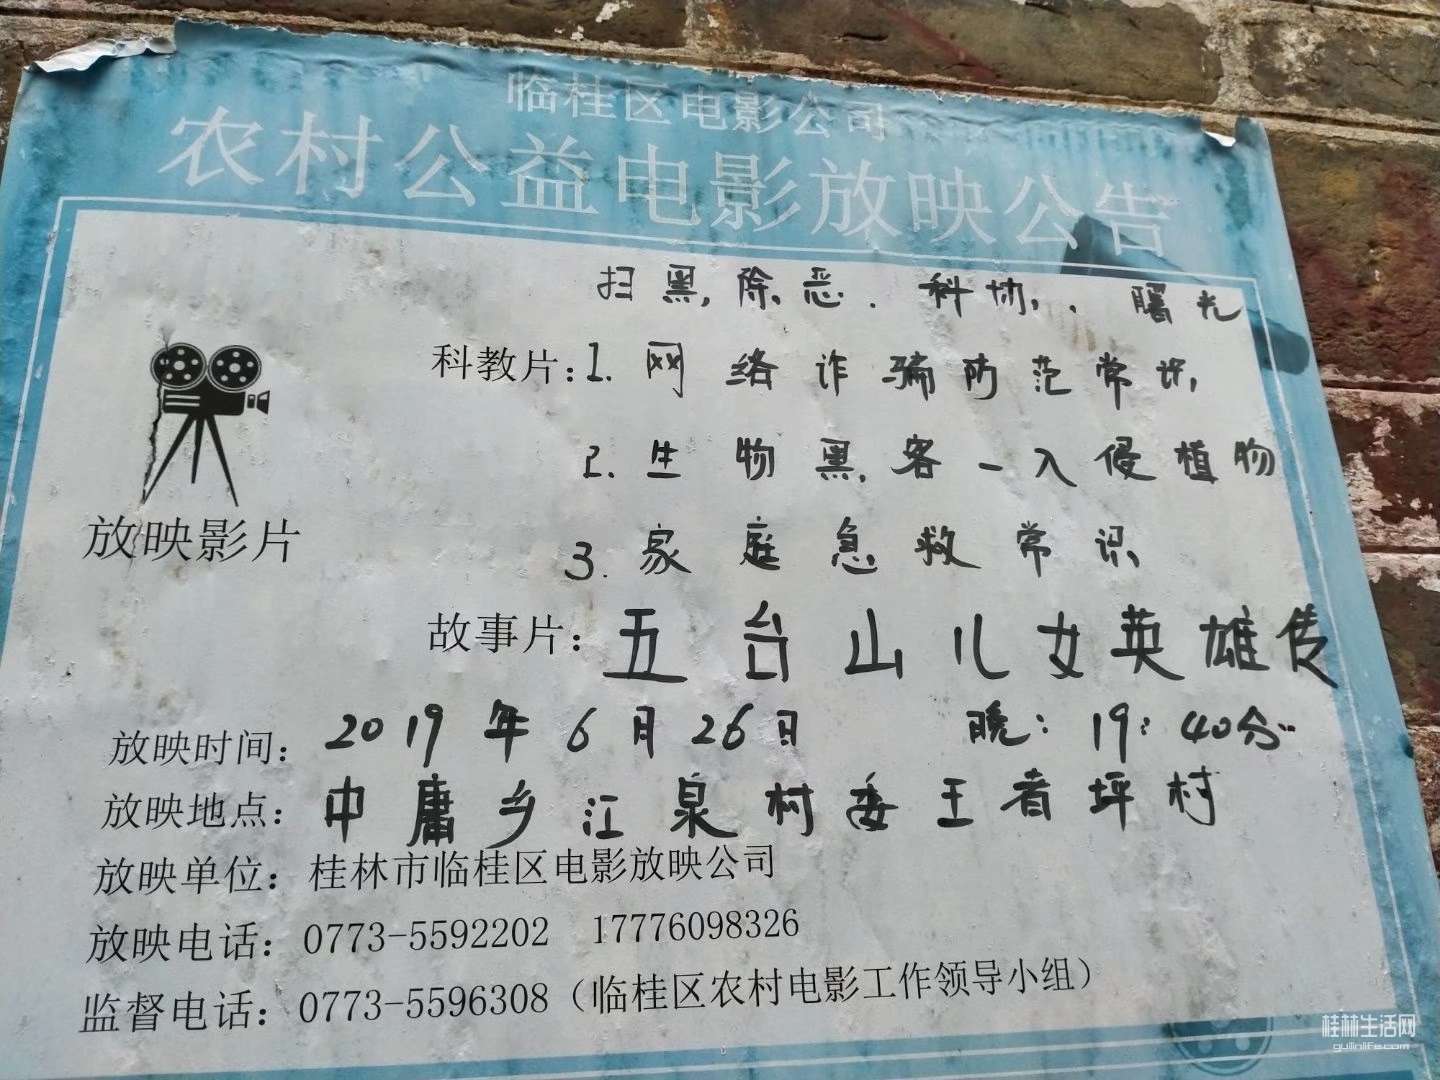 临桂区电影公司
农村公益电影放映公告
扫黑除恶. 科协,. 曙光
科教片:1. 网络诈骗防范常识
2. 生物黑客—入侵植物
3. 家庭急救常识
放映影片
故事片:五台山儿女英雄传
放映时间:2019年6月26日 晚:19:40分
放映地点:中庸乡江泉村委王者坪村
放映单位:桂林市临桂区电影放映公司
放映电话:0773-5592202 17776098326
监督电话:0773-5596308(临桂区农村电影工作领导小组)
桂林生活网
guilinlife.com